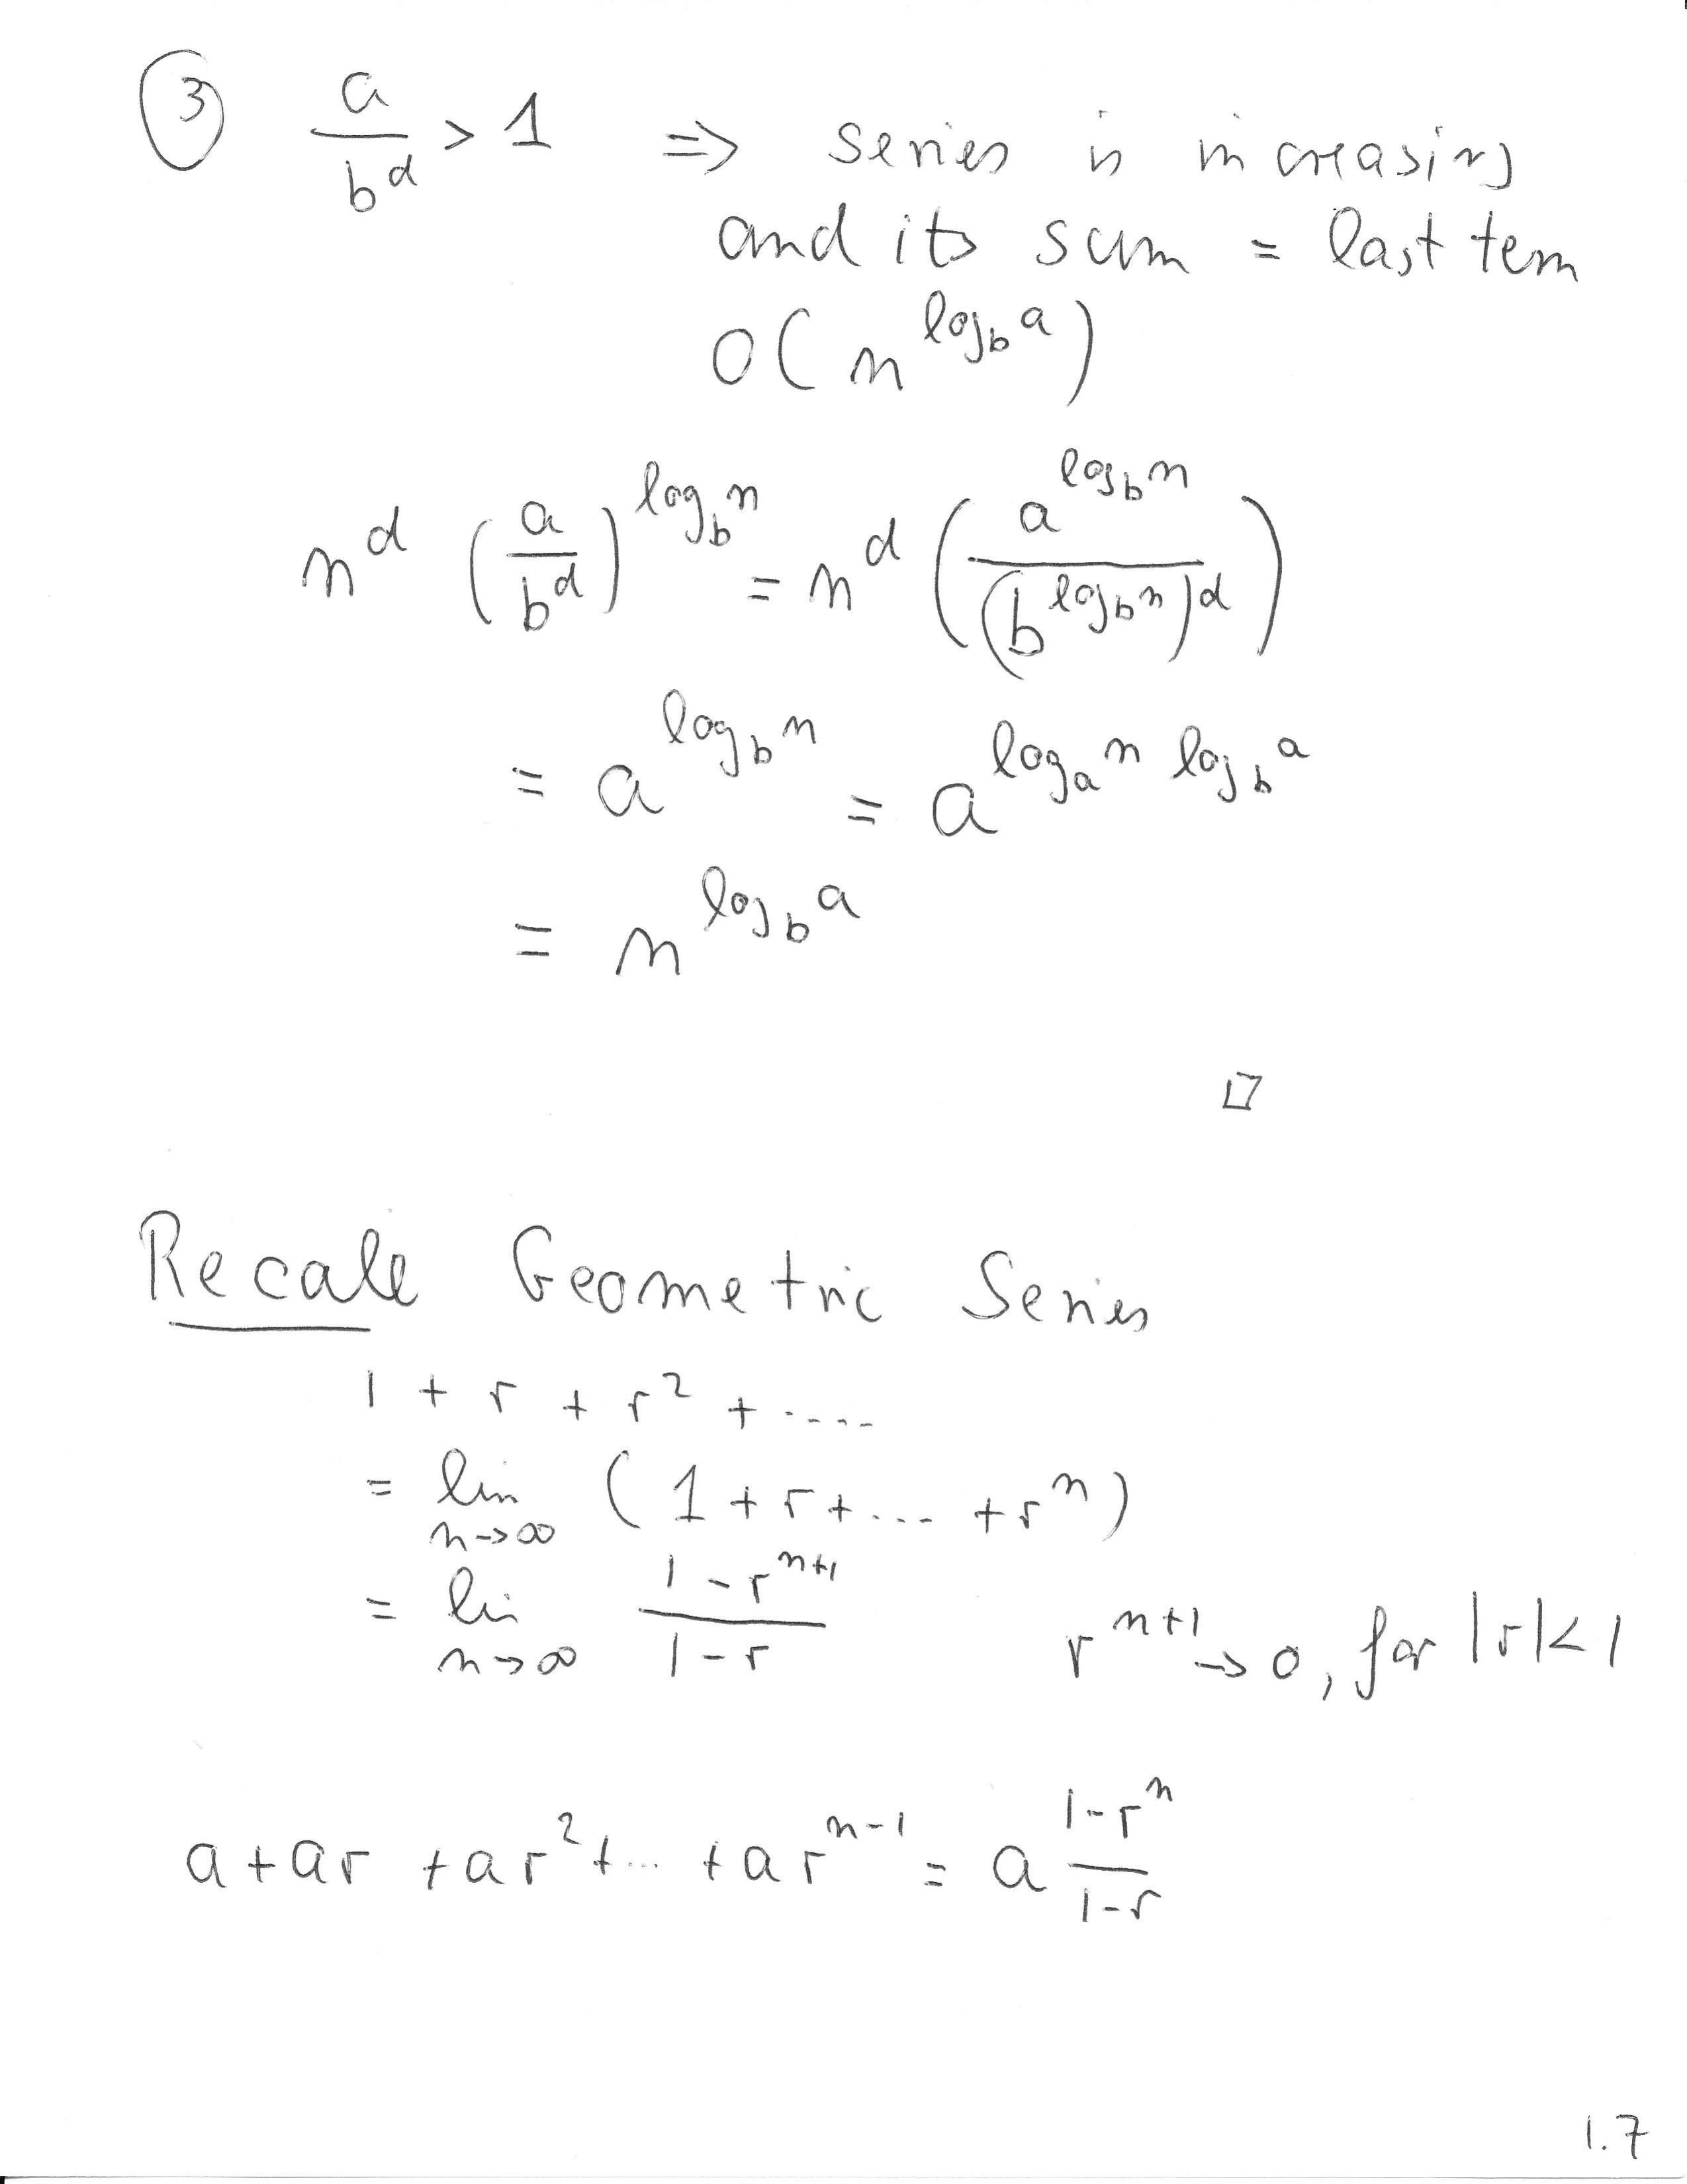 ③ a/b^d > 1 ⇒ series is increasing
and its sum = last term
O(n^{log_b a})
n^d (a/b^d)^{log_b n} = n^d (a^{log_b n}/(b^{log_b n})^d)
= a^{log_b n} = a^{log_a n log_b a}
= n^{log_b a}
□
Recall Geometric Series
1 + r + r² + .....
= lim_{n→∞} (1 + r + .... + r^n)
= lim_{n→∞} (1 - r^{n+1})/(1 - r) r^{n+1} → 0, for |r| < 1
a + ar + ar² + ... + ar^{n-1} = a (1 - r^n)/(1 - r)
1.7